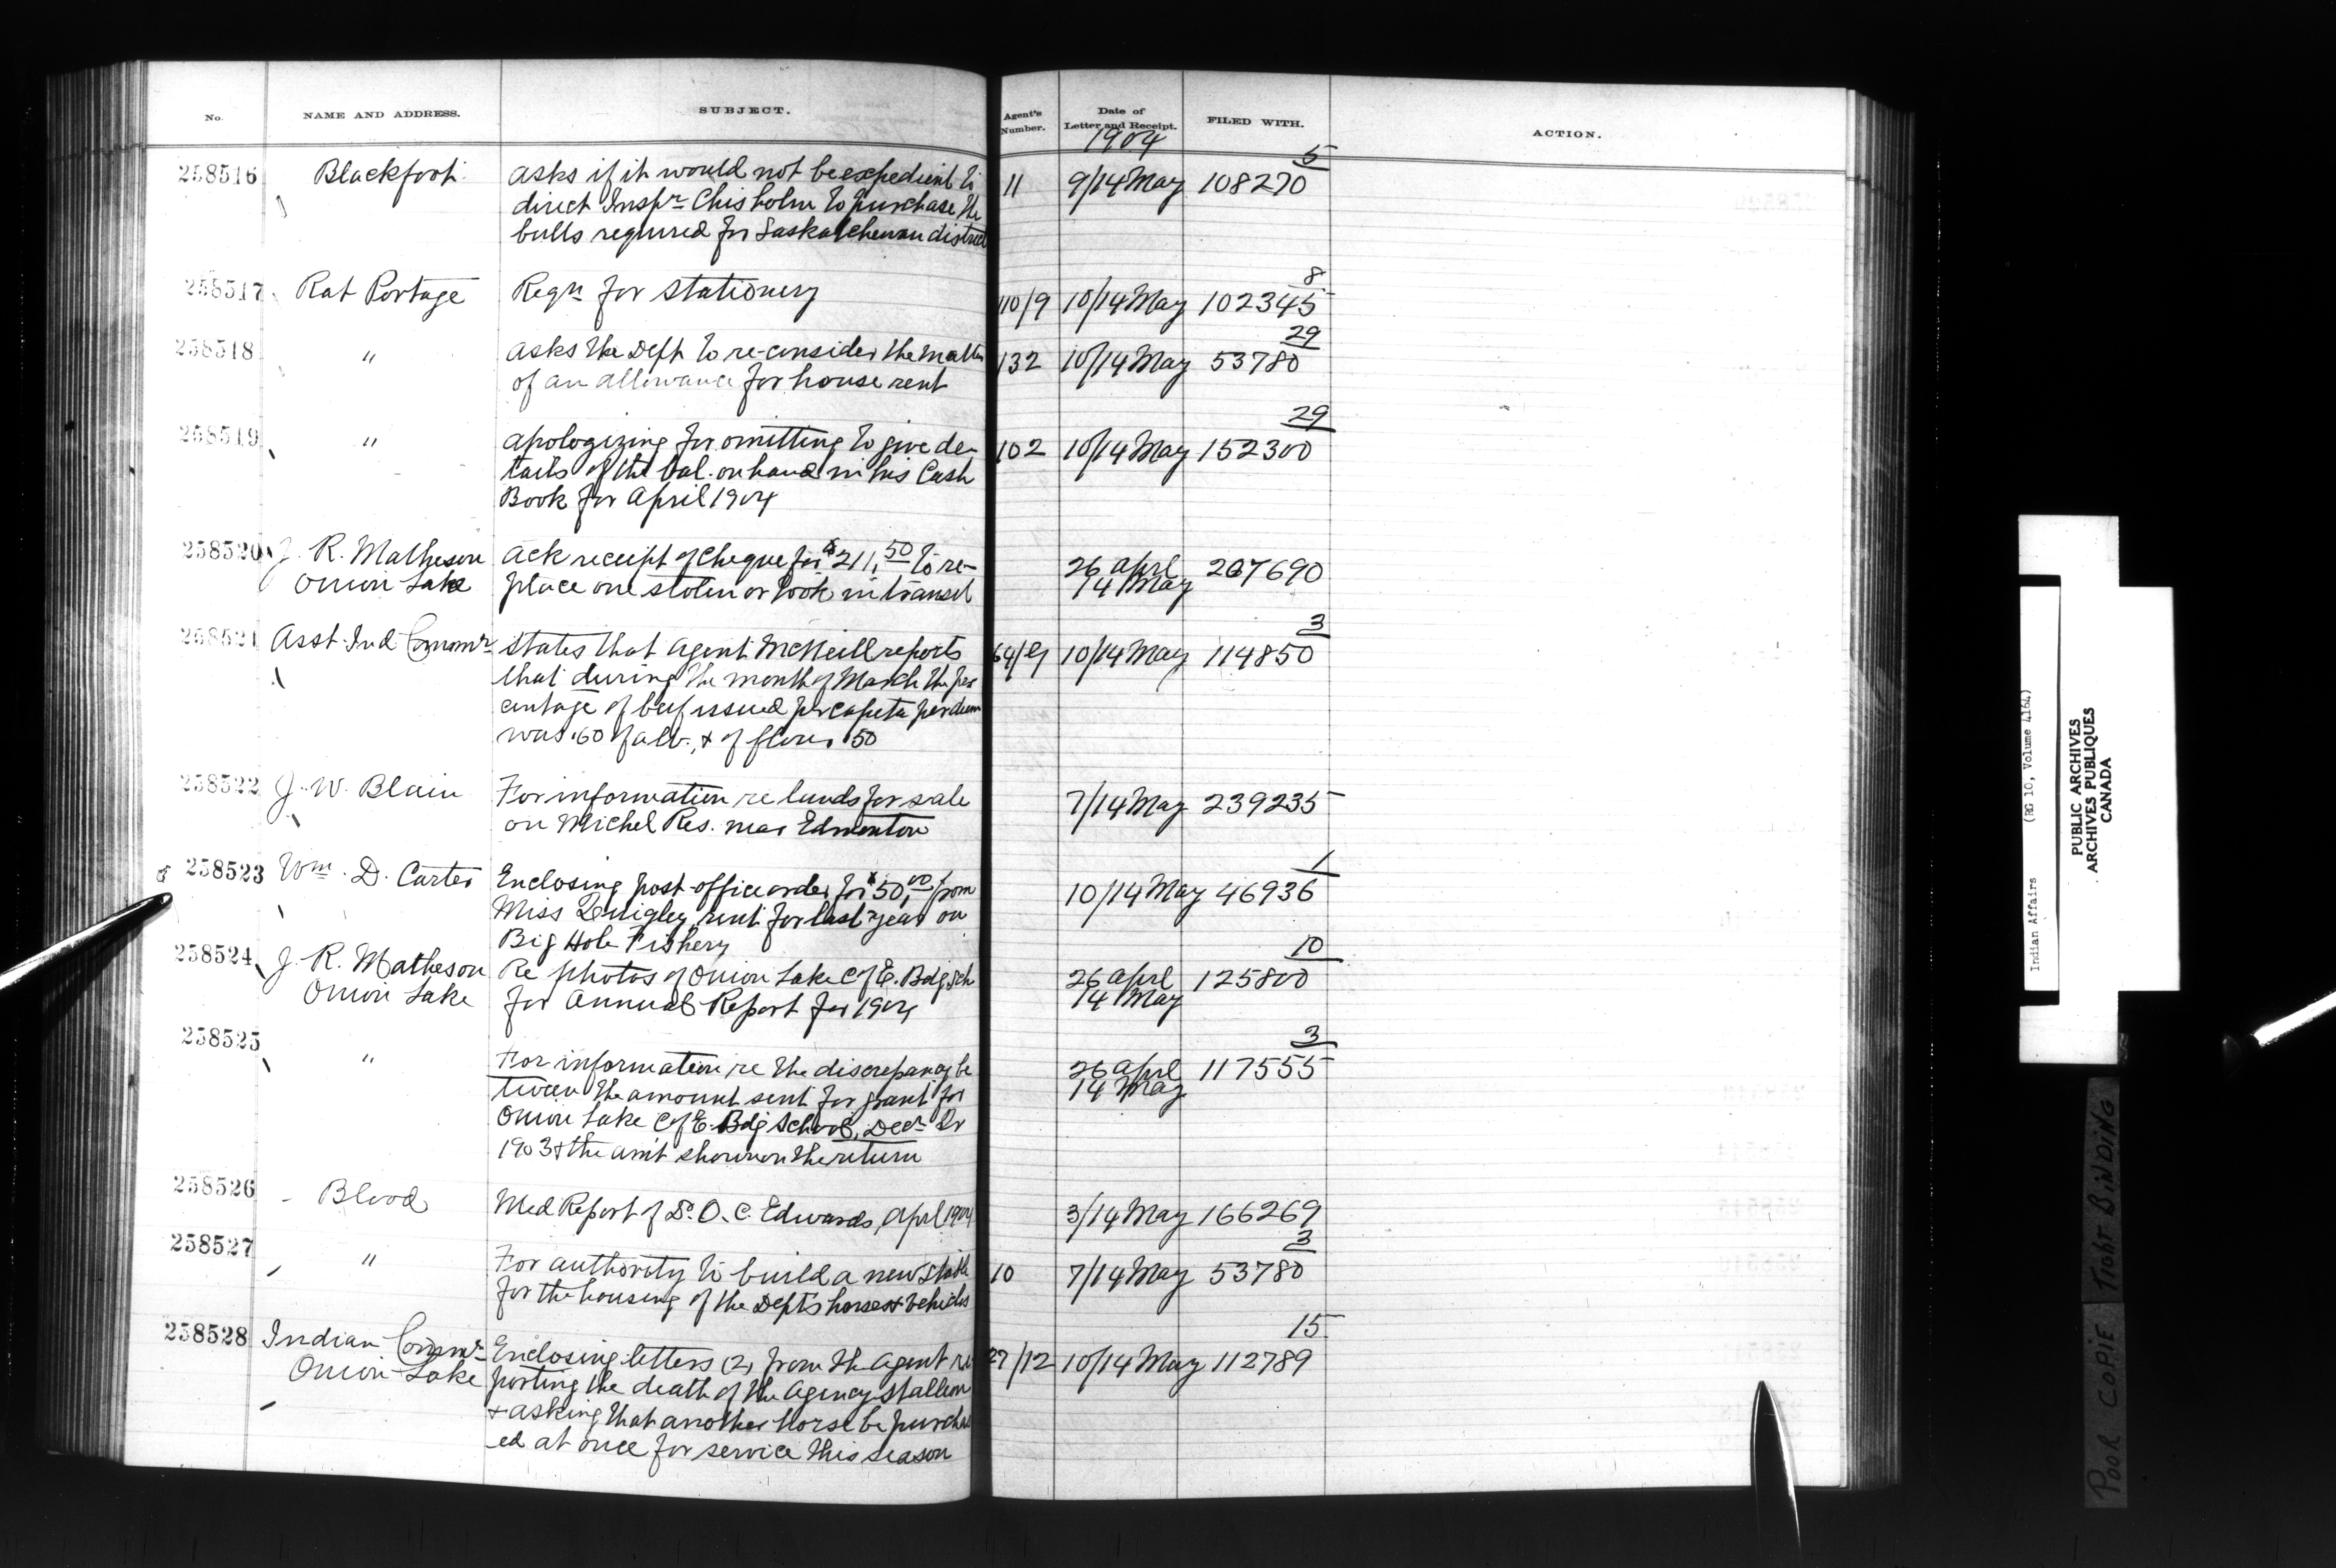 No. NAME AND ADDRESS. SUBJECT. Agent's Number. Date of Letter and Receipt. FILED WITH. ACTION.
1904
258516 Blackfoot asks if it would not be expedient to 11 9/14 May 108270 5
direct Inspr Chisholm to purchase the
bulls required for Saskatchewan district
258517 Rat Portage Reqn for stationery 110/9 10/14 May 102345 8
258518 " asks the Dept to re-consider the matter 132 10/14 May 53780 29
of an allowance for house rent
258519 " apologizing for omitting to give de- 102 10/14 May 152300 29
tails of the bal. on hand in his Cash
Book for April 1904
258520 J. R. Matheson Ack receipt of cheque for $211.50 to re- 26 April 207690
Onion Lake place one stolen or took in transit 14 May
258521 Asst. Ind Commr States that Agent McNeill reports 64/G 10/14 May 114850 3
that during the month of March the per
centage of beef issued per capita per diem
was .60 of a lb., & of flour .50
258522 J. W. Blain For information re lands for sale 7/14 May 239235
on Michel Res. near Edmonton
258523 Wm. D. Carter Enclosing post-office order for $50.00 from 10/14 May 46936 1
Miss Quigley, rent for last year on
Big Hole Fishery
258524 J. R. Matheson Re photos of Onion Lake C of E. Bdg Sch 26 April 125800 10
Onion Lake for Annual Report for 1904 14 May
258525 " For information re the discrepancy be 26 April 117555 3
tween the amount sent for grant for 14 May
Onion Lake C of E. Bdg School, Decr Qr
1903 & the amt shown on the return
258526 Blood Med Report of Dr. O. C. Edwards, April 1904 3/14 May 166269
258527 " For authority to build a new stable 10 7/14 May 53780 3
for the housing of the Dept's horses & vehicles
258528 Indian Commr Enclosing letters (2) from the Agent re 27/12 10/14 May 112789 15
Onion Lake porting the death of the Agency stallion
& asking that another horse be purchas
ed at once for service this season
Indian Affairs (RG 10, Volume 4164)
PUBLIC ARCHIVES
ARCHIVES PUBLIQUES
CANADA
POOR COPIE TIGHT BINDING